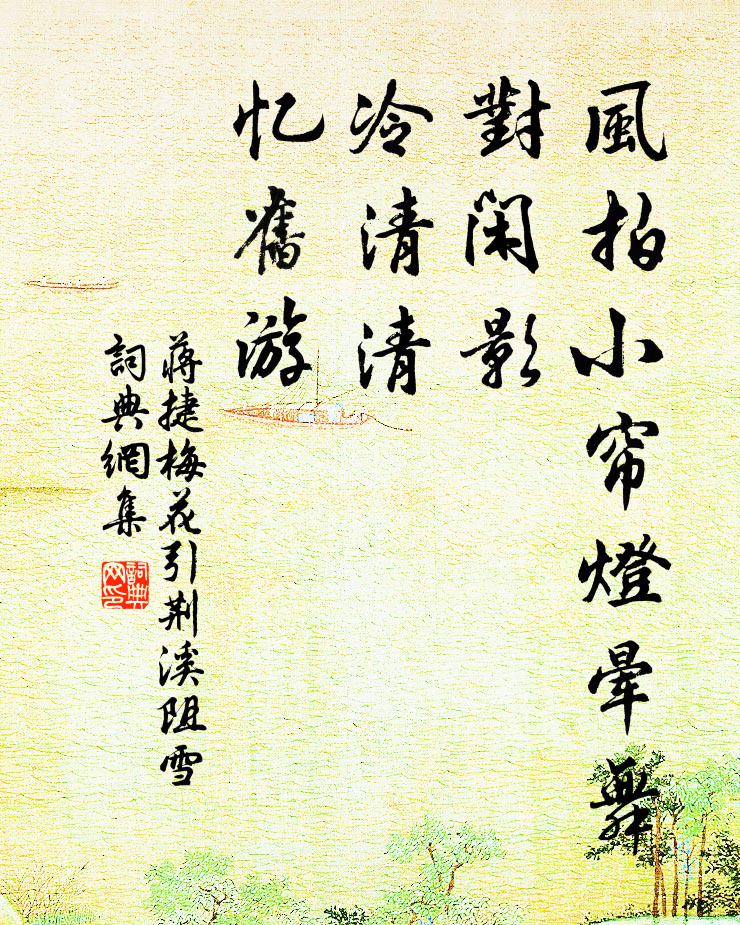 風拍小帘燈暈舞
對闲影
冷清清
忆舊游
蔣捷梅花引荆溪阻雪
詞典網集
詞典网印